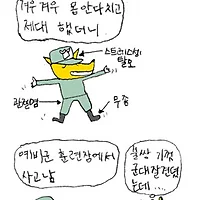 겨우겨우 몸 안다치고
제대 했더니
스트레스성
탈모
관절염
무좀
예비군 훈련장에서
사고남
군대잘전뎠
는데....